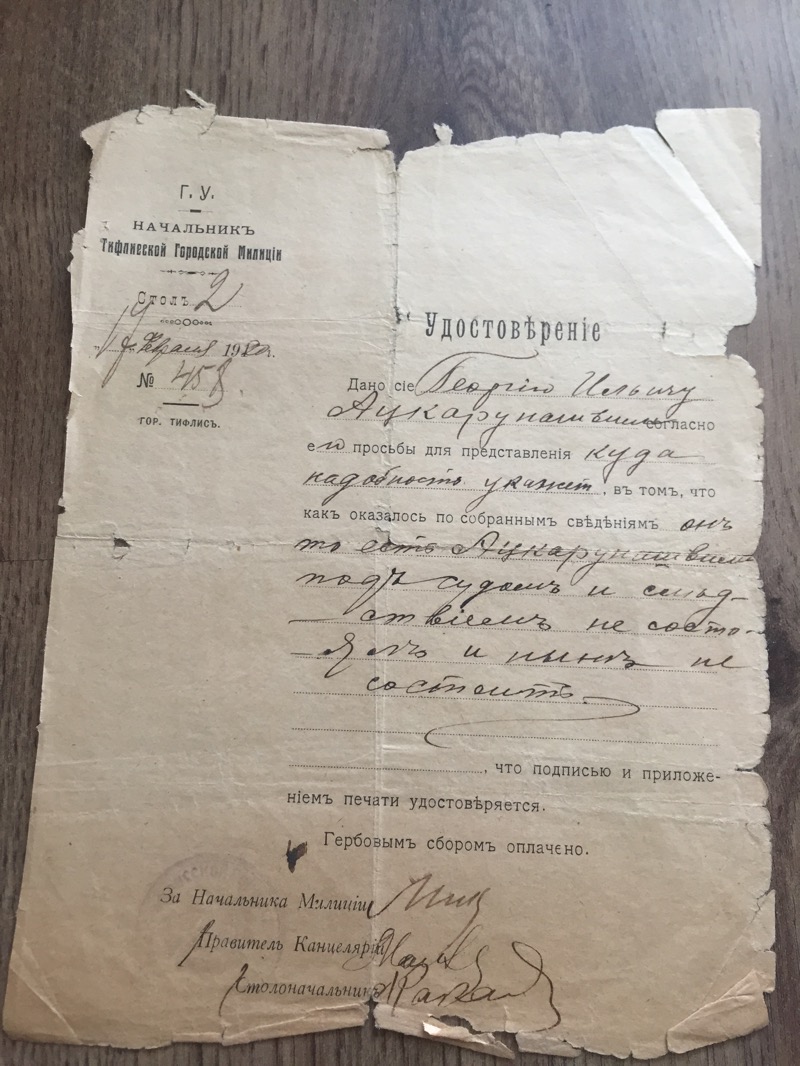 Г. У.
НАЧАЛЬНИКЪ
Тифлисской Городской Милиціи
Столъ 2
19 февраля 1920 г.
№ 458
ГОР. ТИФЛИСЪ.
Удостовѣреніе
Дано сіе Георгію Ильичу
Ацкарунашвили согласно
его просьбы для представленія куда
надобность укажетъ, въ томъ, что
какъ оказалось по собраннымъ свѣдѣніямъ онъ
то есть Ацкарунашвили
подъ судомъ и слѣд-
ствіемъ не состо-
ялъ и нынѣ не
состоитъ.
, что подписью и приложе-
ніемъ печати удостовѣряется.
Гербовымъ сборомъ оплачено.
За Начальника Милиціи
Правитель Канцеляріи
Столоначальникъ